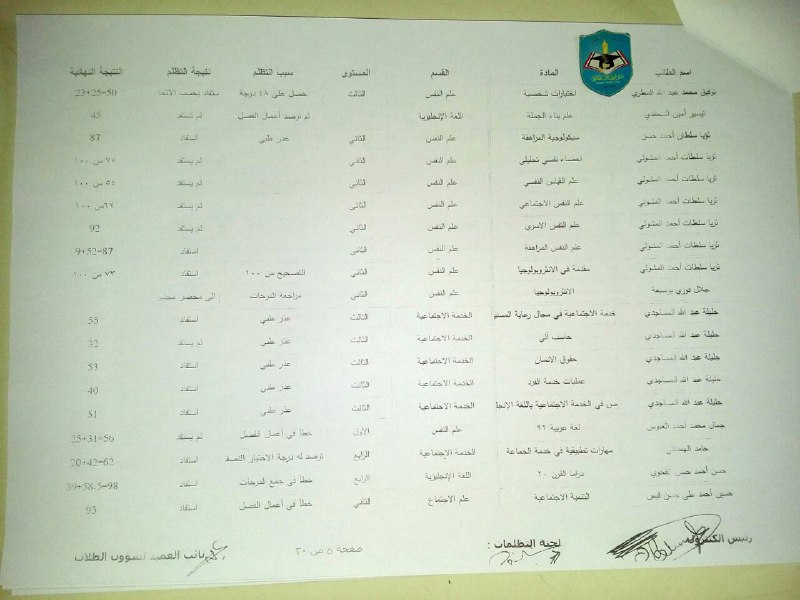 اسم الطالب المادة القسم المستوى سبب التظلم نتيجة التظلم النتيجة النهائية
توفيق محمد عبد الله المطري اختبارات شخصية علم النفس الثالث حصل على ٤٨ درجة 23+25=50
تيسير أمين السعدي علم بناء الجملة اللغة الإنجليزية لم ترصد أعمال الفصل لم يستفد 45
ثريا سلطان أحمد حسن سيكولوجية المراهقة علم النفس الثاني عذر طبي استفاد 87
ثريا سلطات أحمد احصاء نفسي تحليلي علم النفس الثاني لم يستفد ٧٥ من ١٠٠
ثريا سلطات أحمد علم القياس النفسي علم النفس الثاني لم يستفد ٥٤ من ١٠٠
ثريا سلطات أحمد علم النفس الاجتماعي علم النفس الثاني لم يستفد ٦٧من ١٠٠
ثريا سلطات أحمد علم النفس الاسري علم النفس الثاني لم يستفد 92
ثريا سلطات أحمد علم النفس المراهقة علم النفس الثاني استفاد 9+52=87
ثريا سلطات أحمد مقدمة في الانثروبولوجيا علم النفس الثاني التصحيح من ١٠٠ استفاد ٧٣ من ١٠٠
جلال فوزي الانثروبولوجيا علم النفس الثاني مراجعه الدرجات إلى محضر
جليلة عبد الله المساجدي خدمة الاجتماعية في مجال رعاية الخدمة الاجتماعية الثالث عذر طبي استفاد 55
جليلة عبد الله المساجدي حاسب آلي الخدمة الاجتماعية الثالث عذر طبي لم يستفد 32
جليلة عبد الله المساجدي حقوق الانسان الخدمة الاجتماعية الثالث عذر طبي استفاد 53
جليلة عبد الله المساجدي عمليات خدمة الفرد الخدمة الاجتماعية الثالث عذر طبي استفاد 40
جليلة عبد الله المساجدي ص في الخدمة الاجتماعية باللغة الإنجل الخدمة الاجتماعية الثالث عذر طبي استفاد 51
جمان محمد أحمد لغة عربية ٩٢ علم النفس الأول خطأ في أعمال الفصل لم يستفد 25+31=56
حامد الهمداني مهارات تطبيقية في خدمة الجماعة الخدمة الاجتماعية الرابع ترصد له درجة الاختبار النصف استفاد 20+42=62
حسن أحمد حسن دراما القرن ٢٠ اللغة الإنجليزية الرابع خطأ في جمع الدرجات استفاد 39+58.5=98
حسين أحمد علي حسن قيس التنمية الاجتماعية علم الاجتماع الثاني خطأ في أعمال الفصل استفاد 93
رئيس الكنترول لجنة التظلمات : صفحة ٥ من ٢٠ نائب العميد لشؤون الطلاب